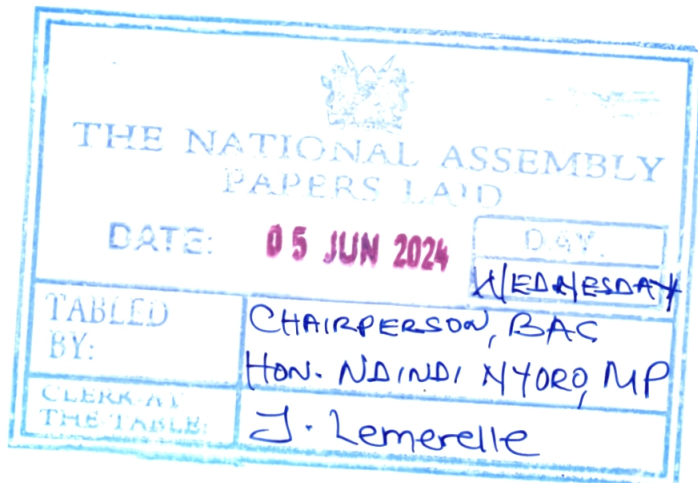 THE NATIONAL ASSEMBLY
PAPERS LAID
DATE: 05 JUN 2024
DAY.
WEDNESDAY
TABLED BY:
CHAIRPERSON, BAC
HON. NDINDI NYORO, MP
CLERK-AT THE TABLE:
J. Lemerelle